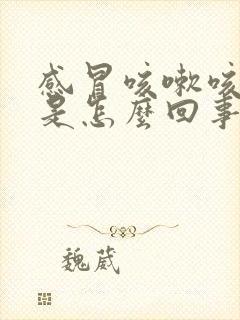 感冒咳嗽咳
是怎麼回事
魏葳